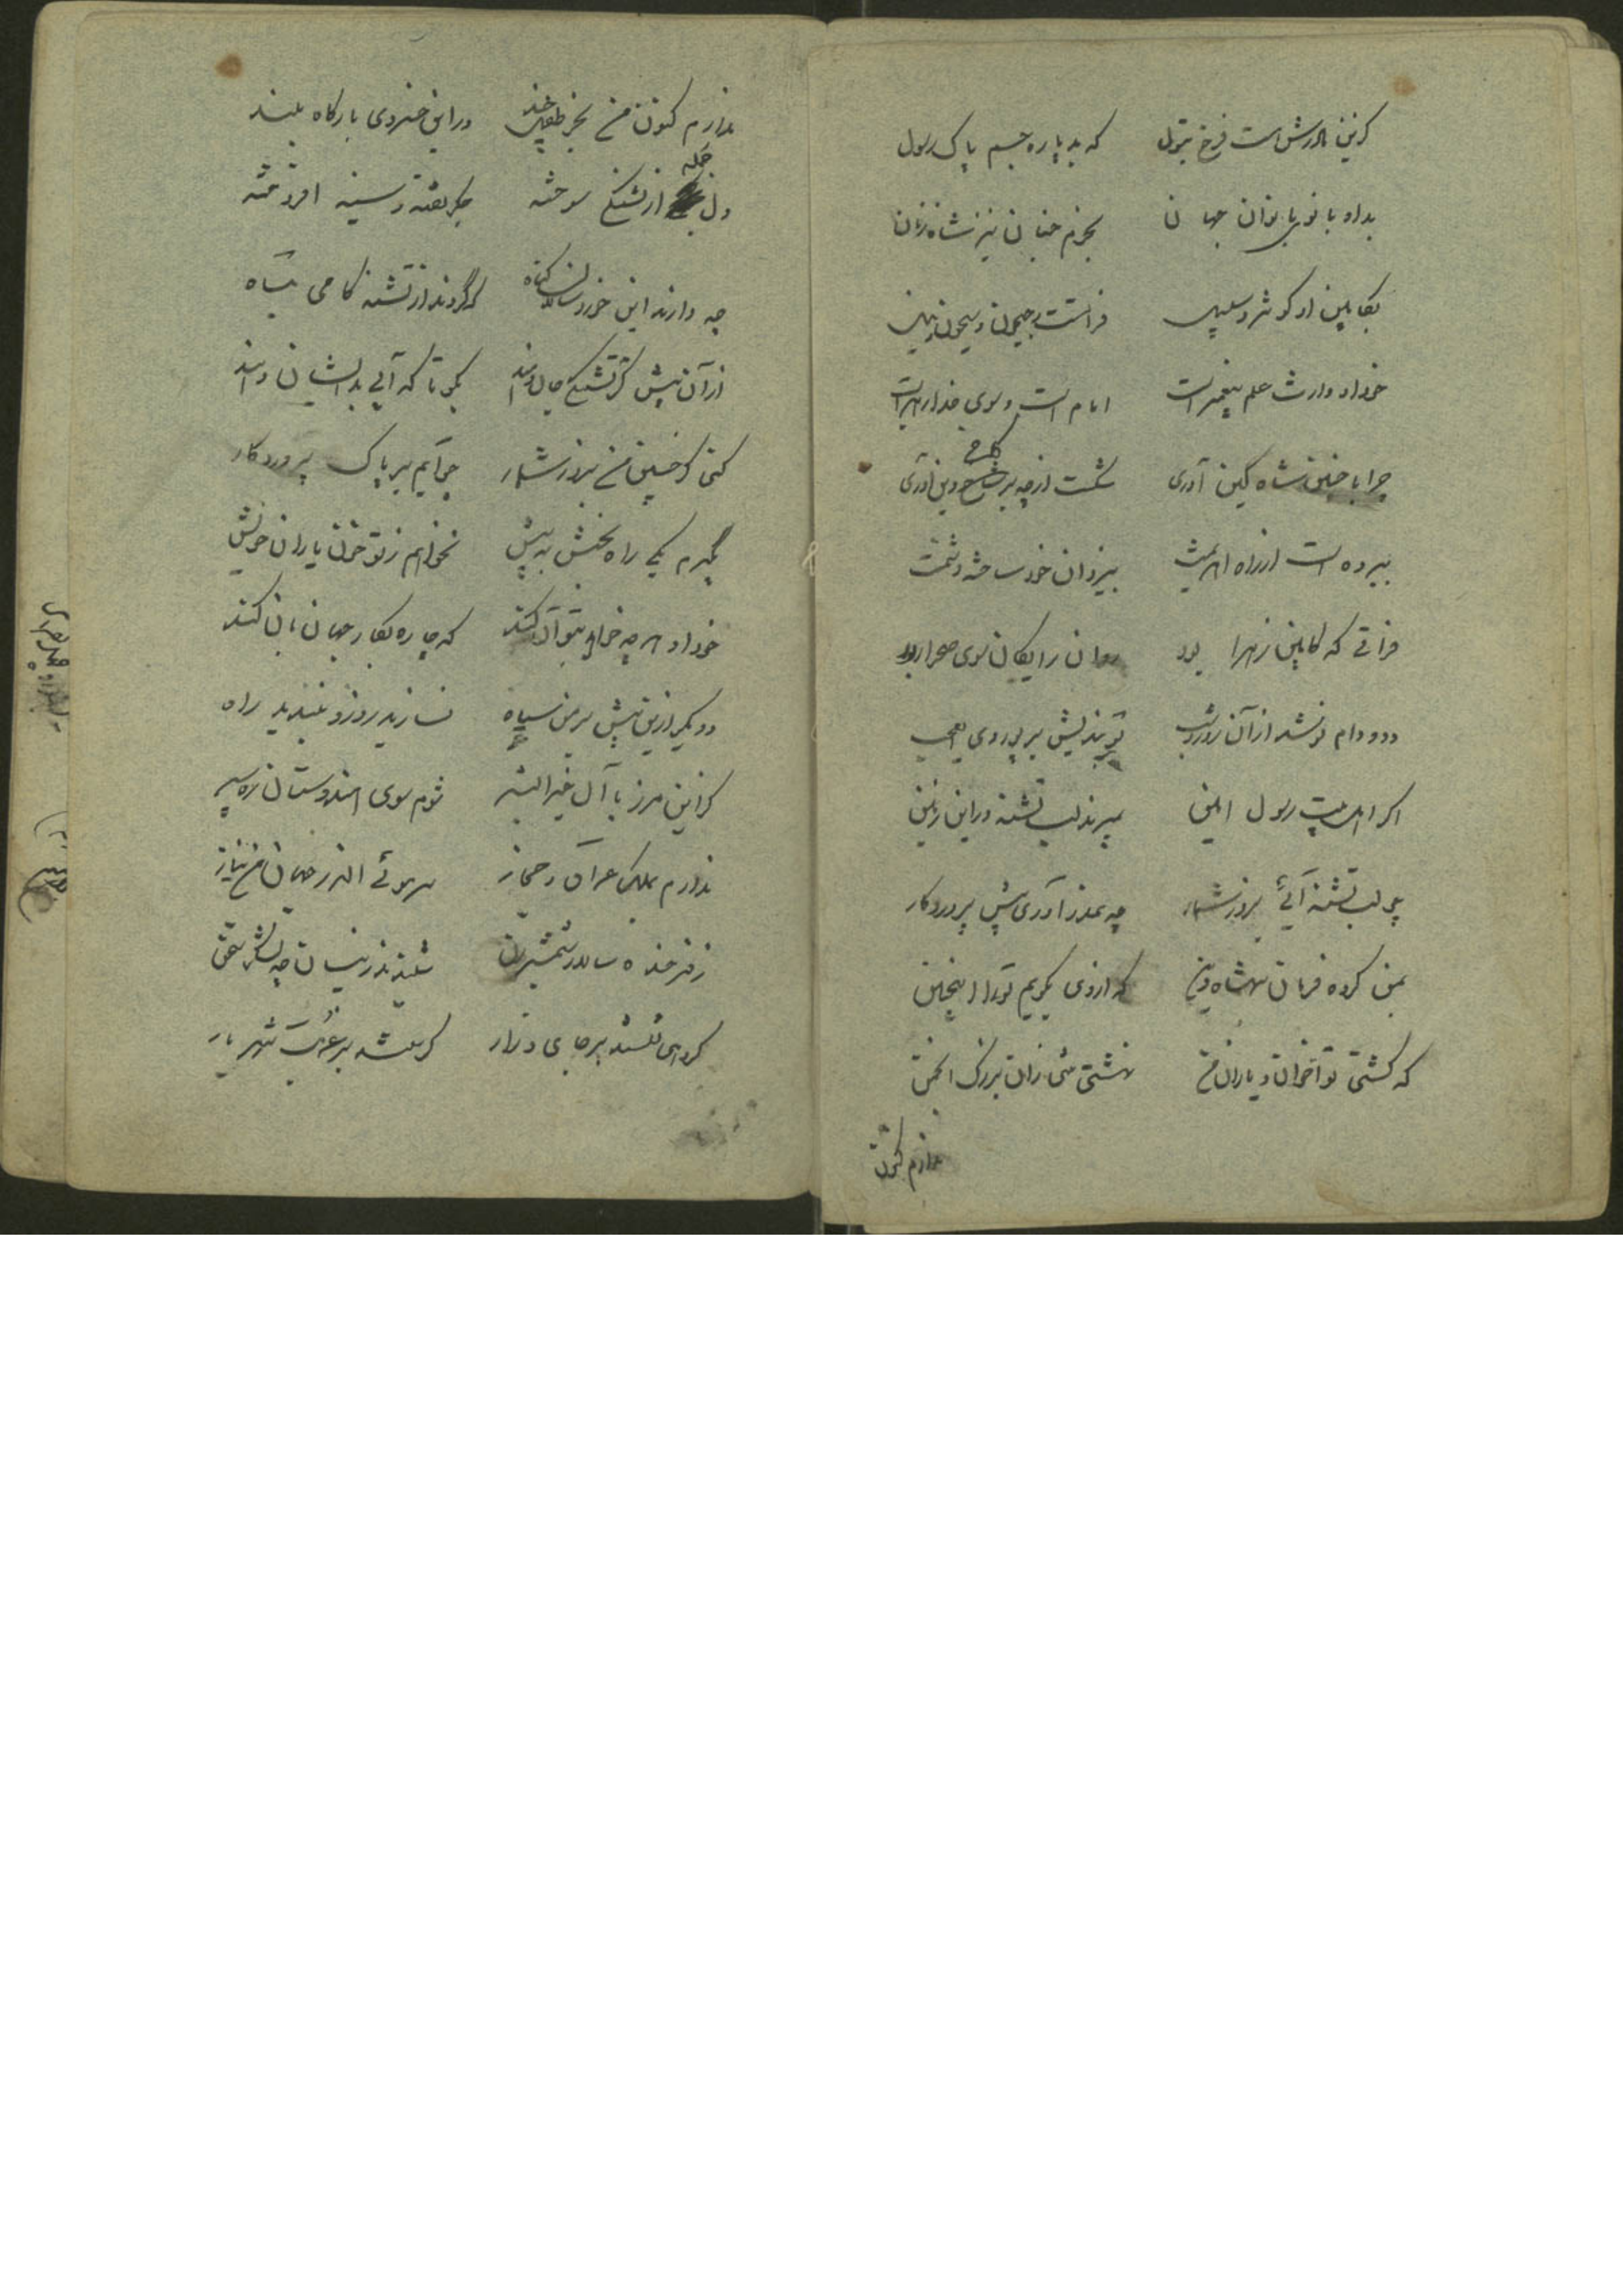 کزین مادرش است فرخ بتول که بد پاره جسم پاک رسول
بد او بانوی بانوان جهان بخرم جنان نیز شاه زنان
بکابین او کوثر و سلسبیل فراتست و جیحون و سیحون و نیل
خود او وارث علم پیغمبر است امام است و سوی خدا رهبر است
چرا با چنین شاه کین آوری شکست از چه بر کاخ دین آوری
ببرده است از راه اهریمنت بیزدان خود ساخته دشمنت
فراتی که کابین زهرا بود روان رایکان سوی صحرا بود
دد و دام نوشد از آن روز و شب تو بندیش بر پور وی ای عجب
اگر اهل بیت رسول امین بمیرند لب تشنه در این زمین
چو لب تشنه آئی بروز شمار چه عذر آوری پیش پروردگار
بمن کرده فرمان شهنشاه دین که از وی بگویم تو را اینچنین
که کشتی تو اخوان و یاران من نهشتی تنی زان بزرگ انجمن
ندارم کنون
ندارم کنون من بجز طفل چند در این خسروی بارگاه بلند
دل جمله از تشنگی سوخته جگر تفته و سینه افروخته
چه دارند این خوردسالان گناه که گردند از تشنه کامی تباه
از آن پیش کز تشنگی جان دهند بگو تا که آبی بدیشان دهند
کنی گر چنین من بروز شمار چو آیم بر پاک پروردگار
نگیرم یکی راه بخشش به پیش نخواهم ز تو خون یاران خویش
خود او هر چه خواهد بتو آن کند که چاره بکار جهانبان کند
دو دیگر ازین پیش بر من سپاه نسازید روز و نبندید راه
کزاین مرز با آل خیر البشر شوم سوی هندوستان ره سپر
ندارم بملک عراق و حجاز سر موئی اندر جهان من نیاز
ز فرخنده سالار شمشیر زن شنیدند زینسان چو لشکر سخن
گروهی نشستند بر جای و زار گریستند بر غربت شهریار